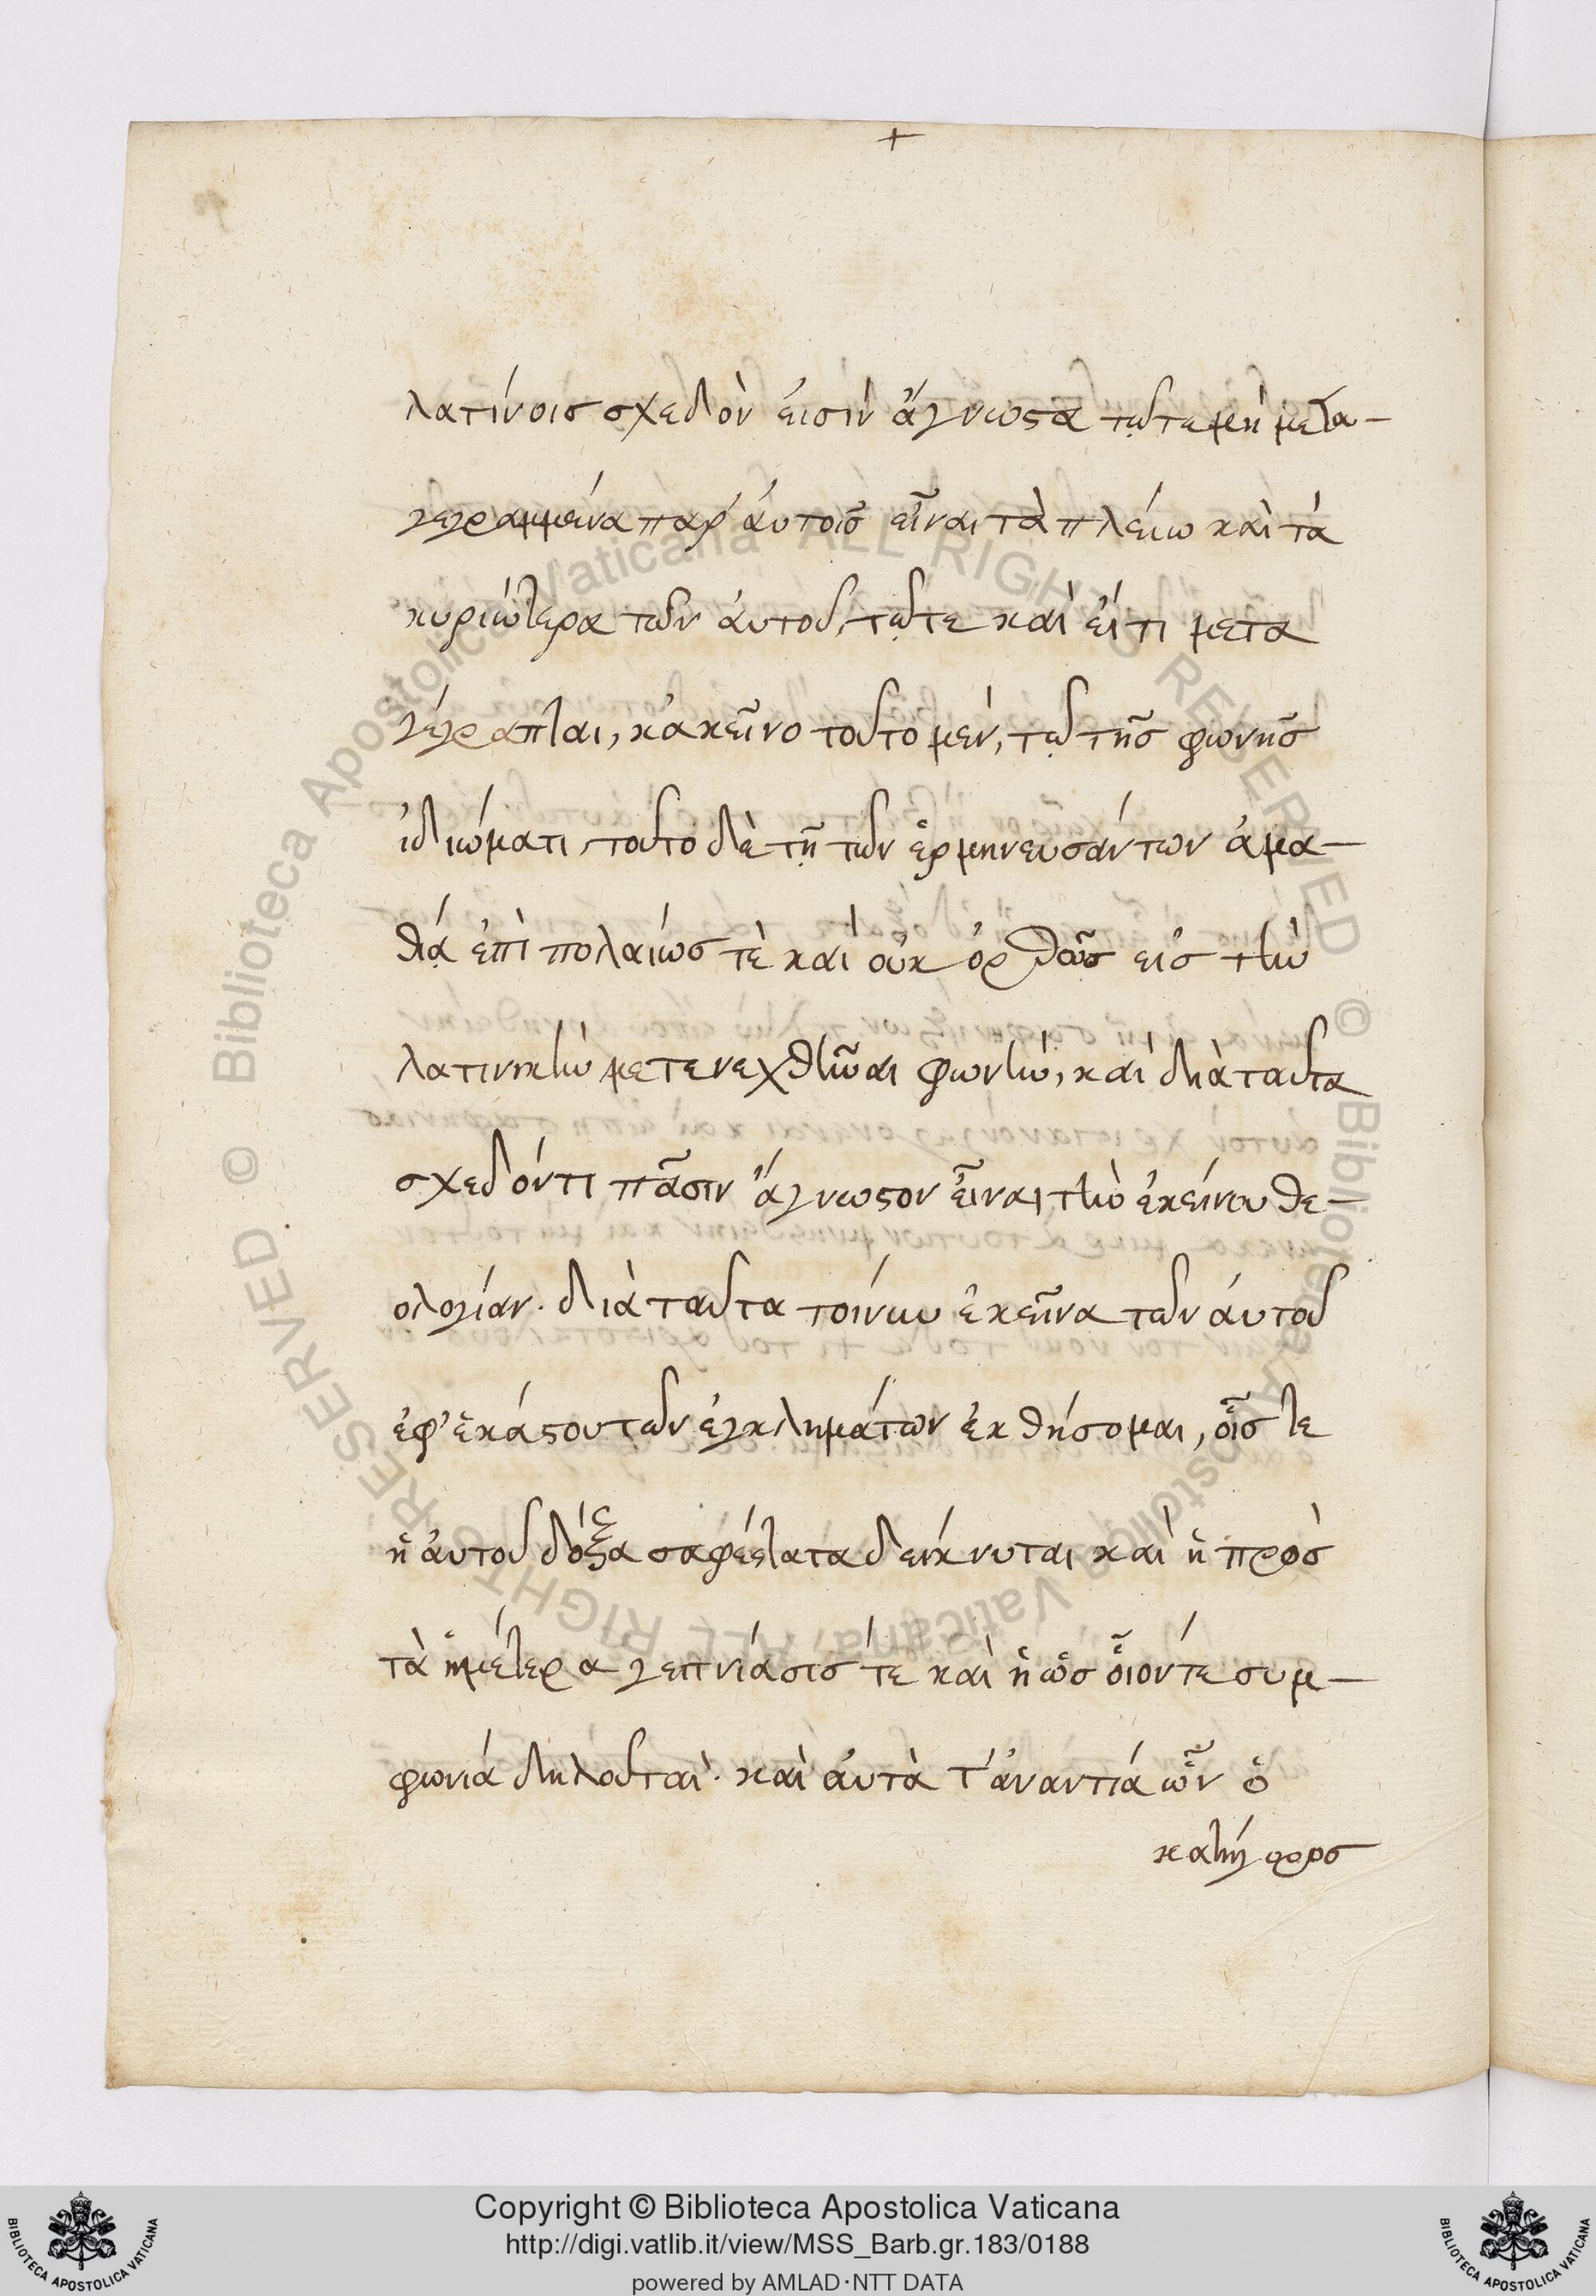 +
λατίνοισ σχεδὸν ἐισὶν ἄγνωϛα τῷτεμὴ μετα-
γεγραμμένα παρ' ἀυτοῖσ εἶναι τὰ πλείω καὶ τὰ
κυριώτερα τῶν ἀυτοῦ, τῷτε καὶ ἐίτι μετα
γέγραπται, κἀκεῖνο τοῦτο μὲν, τῷ τῆσ φωνῆσ
ἰδιώματι, τοῦτο δὲ τῇ τῶν ἑρμηνευσάντων ἀμα-
θίᾳ ἐπὶ πολαίωσ τὲ καὶ οὐκ ὀρθῶσ εἰσ τὴν
λατινικὴν μετενεχθῆναι φωνὴν, καὶ διὰ ταῦτα
σχεδόντι πᾶσιν ἄγνωϛον εἶναι τὴν ἐκείνου θε-
ολογίαν. διὰ ταῦτα τοίνυν ἐκεῖνα τῶν ἀυτοῦ
ἐφ' ἑκάϛου τῶν ἐγκλημάτων ἐκθήσομαι, οἷσ τε
ἡ ἀυτοῦ δόξα σαφέϛατα δείκνυται καὶ ἡ πρὸσ
τὰ ἡμέτερα γειτνίασίσ τε καὶ ἡ ὡσ οἷοντε συμ-
φωνία δηλοῦται. καὶ ἀυτὰ τ' ἀναντία ὧν ὁ
κατήγοροσ
Copyright © Biblioteca Apostolica Vaticana
http://digi.vatlib.it/view/MSS_Barb.gr.183/0188
powered by AMLAD·NTT DATA
BIBLIOTECA APOSTOLICA VATICANA
BIBLIOTECA APOSTOLICA VATICANA
© Biblioteca Apostolica Vaticana ALL RIGHTS RESERVED
© Biblioteca Apostolica Vaticana ALL RIGHTS RESERVED